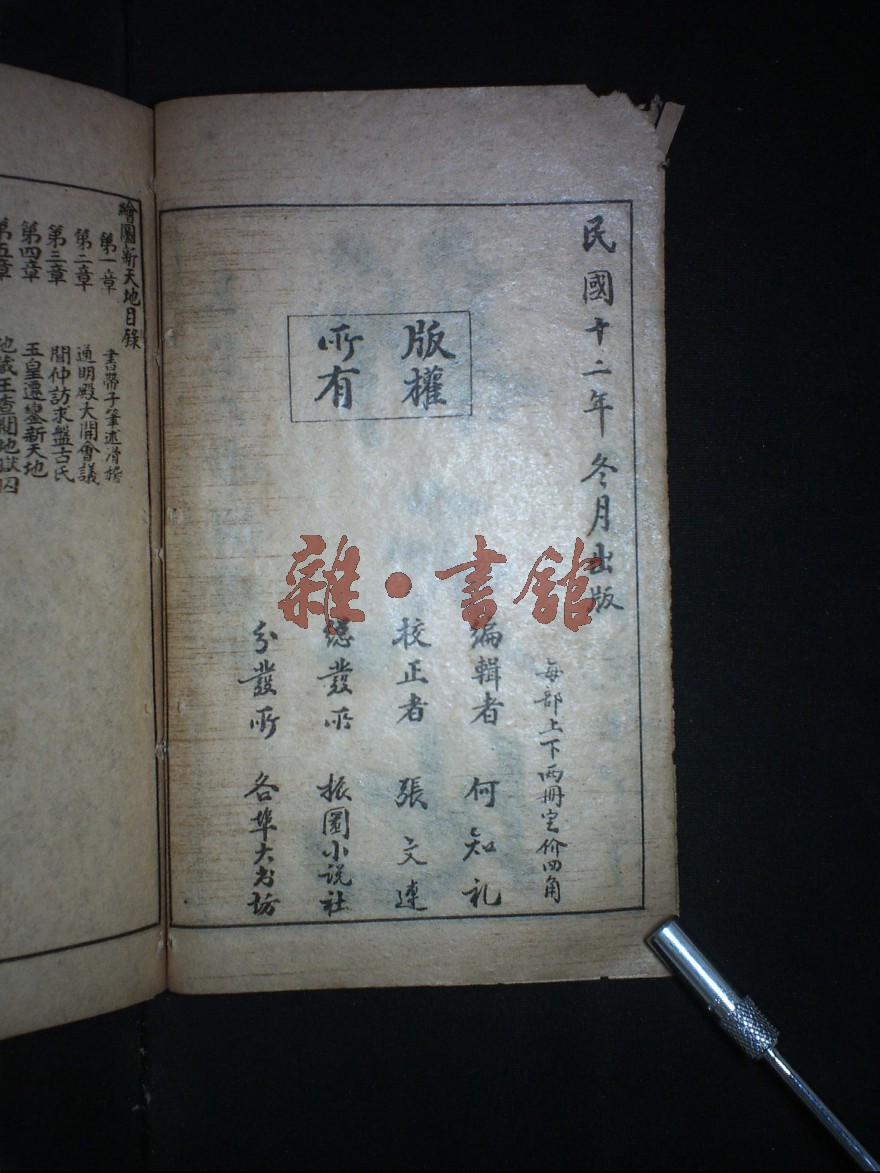 民國十二年冬月出版
每部上下兩冊定价四角
版權
所有
編輯者 何知礼
校正者 張文連
總發所 振圜小説社
分發所 各埠大书坊
雜·書館
繪圖新天地目錄
第一章 書帶子筆述滑稽
第二章 通明殿大開會議
第三章 聞仲訪求盤古氏
第四章 玉皇遷鑾新天地
第五章 地藏王查閱地獄囚